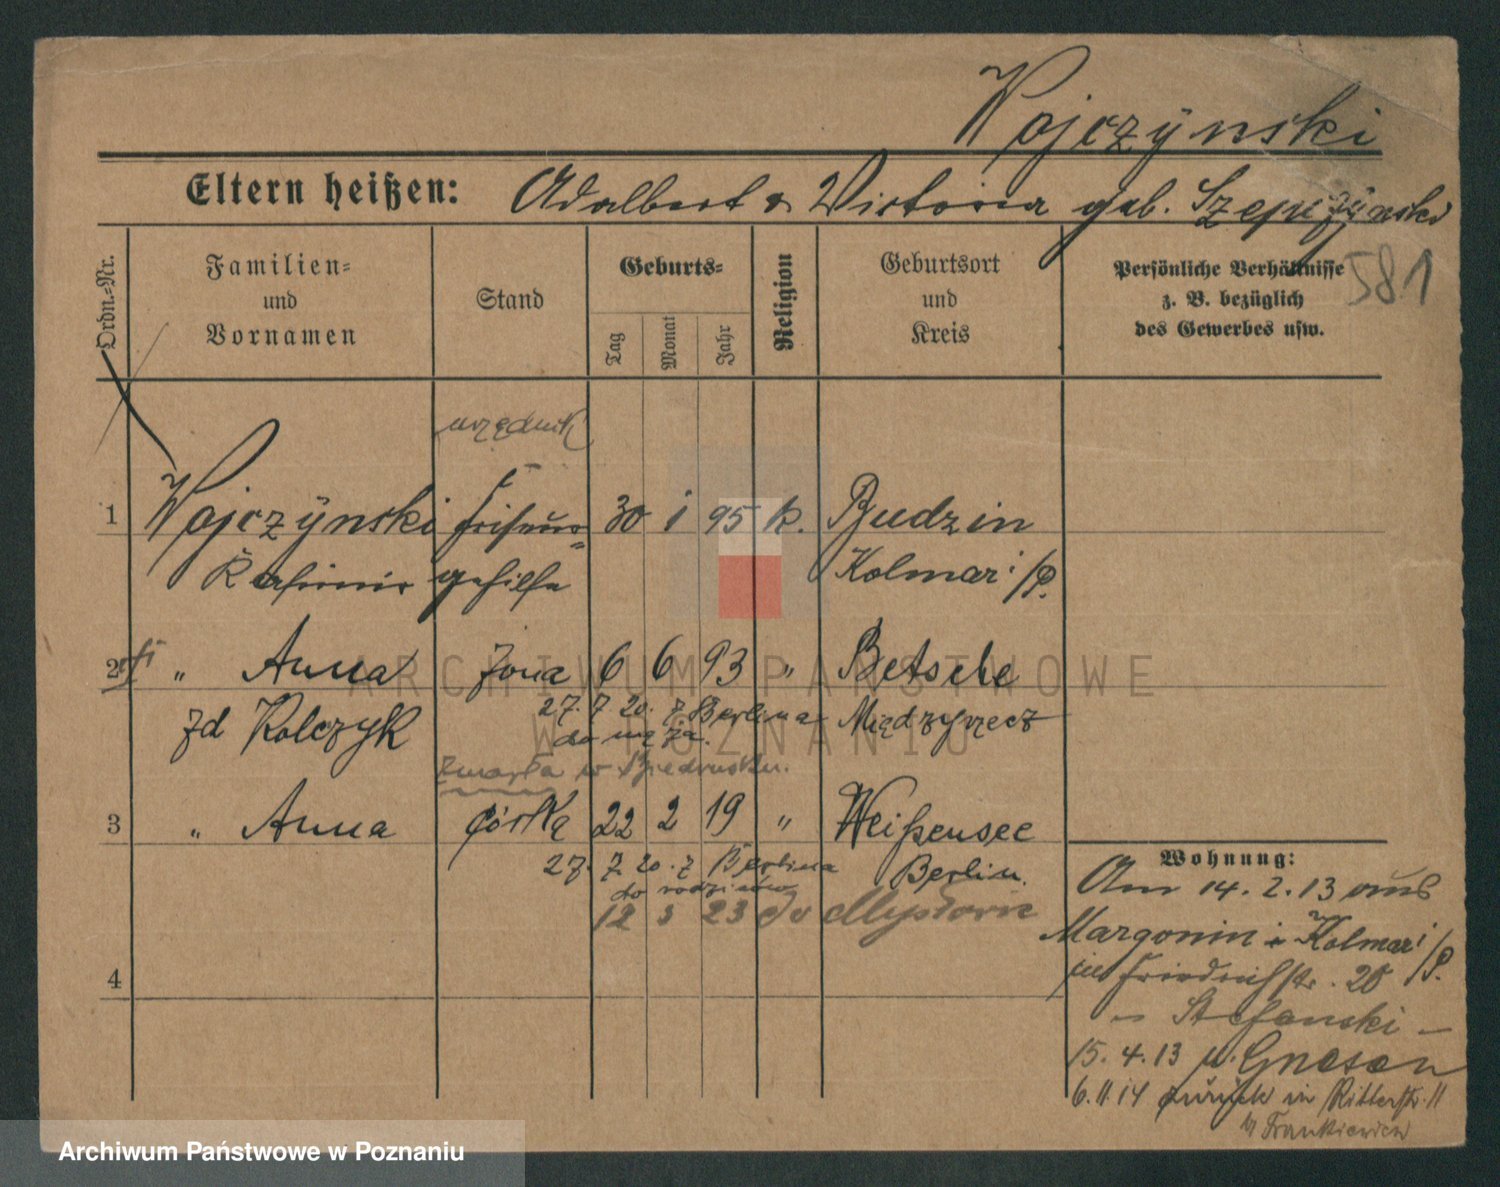 Wojczÿnski
Eltern heißen: Adalbert & Victoria geb. Szepczÿnski
581
Ordn.-Nr.
Familien-
und
Vornamen
Stand
Geburts-
Tag
Monat
Jahr
Religion
Geburtsort
und
Kreis
Persönliche Verhältnisse
z. B. bezüglich
des Gewerbes usw.
urzędnik
1 Wojczÿnski Friseur- 30 1 95 k. Budzin
Kasimir gehilfe Kolmar i/P.
2 " Anna żona 6 6 93 " Betsche
zd Kolczyk 27. 7 20. z Berlina Międzyrzecz
do męża.
zmarła w Biedrusku.
3 " Anna córka 22 2 19 " Weißensee
27. 7 20. z Berlina Berlin.
do rodziców
12 3 23 do Mysłowic
4
Wohnung:
Am 14. 2. 13 aus
Margonin i Kolmar i/P.
in Friedrichstr. 20
- Stefanski -
15. 4. 13 n. Gnesen
6. 11. 14 zurück in Ritterstr. 11
b/ Frankiewicz
ARCHIWUM PAŃSTWOWE
W POZNANIU
Archiwum Państwowe w Poznaniu